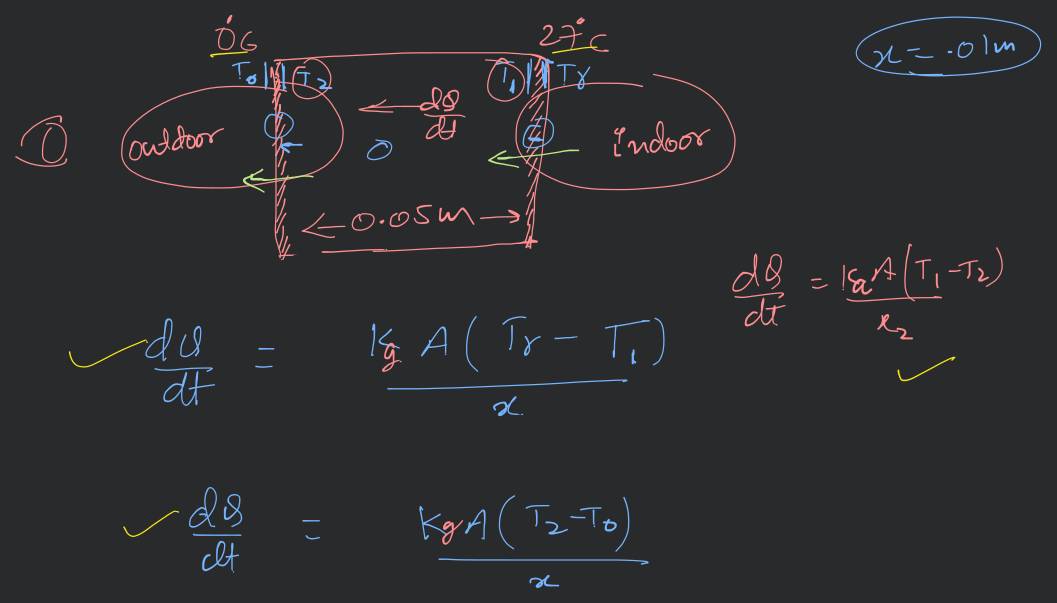 0°C 27°C
x = .01m
T₀ T₂ T₁ Tr
dQ/dt
① outdoor indoor
0.05m
dQ/dt = KaA(T₁-T₂)/x₂
dQ/dt = KgA(Tr - T₁)/x
dQ/dt = KgA(T₂-T₀)/x